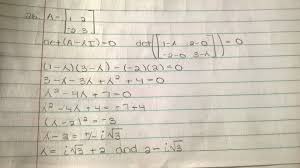 2b. A = [1 2
-2 3]
det(A-λI)=0 det([1-λ 2-0
-2-0 3-λ])=0
(1-λ)(3-λ) - (-2)(2) = 0
3-λ-3λ+λ²+4=0
λ²-4λ+7=0
λ²-4λ+4=-7+4
(λ-2)²=-3
λ-2=+/-i√3
λ=i√3+2 and 2-i√3